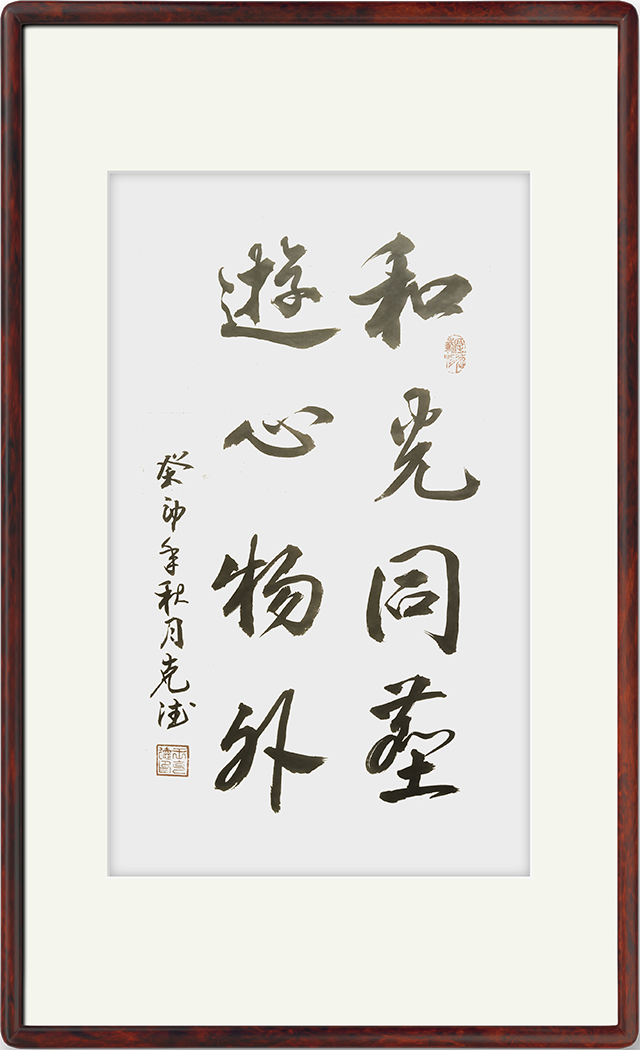 和光同塵
遊心物外
癸卯年秋月克法